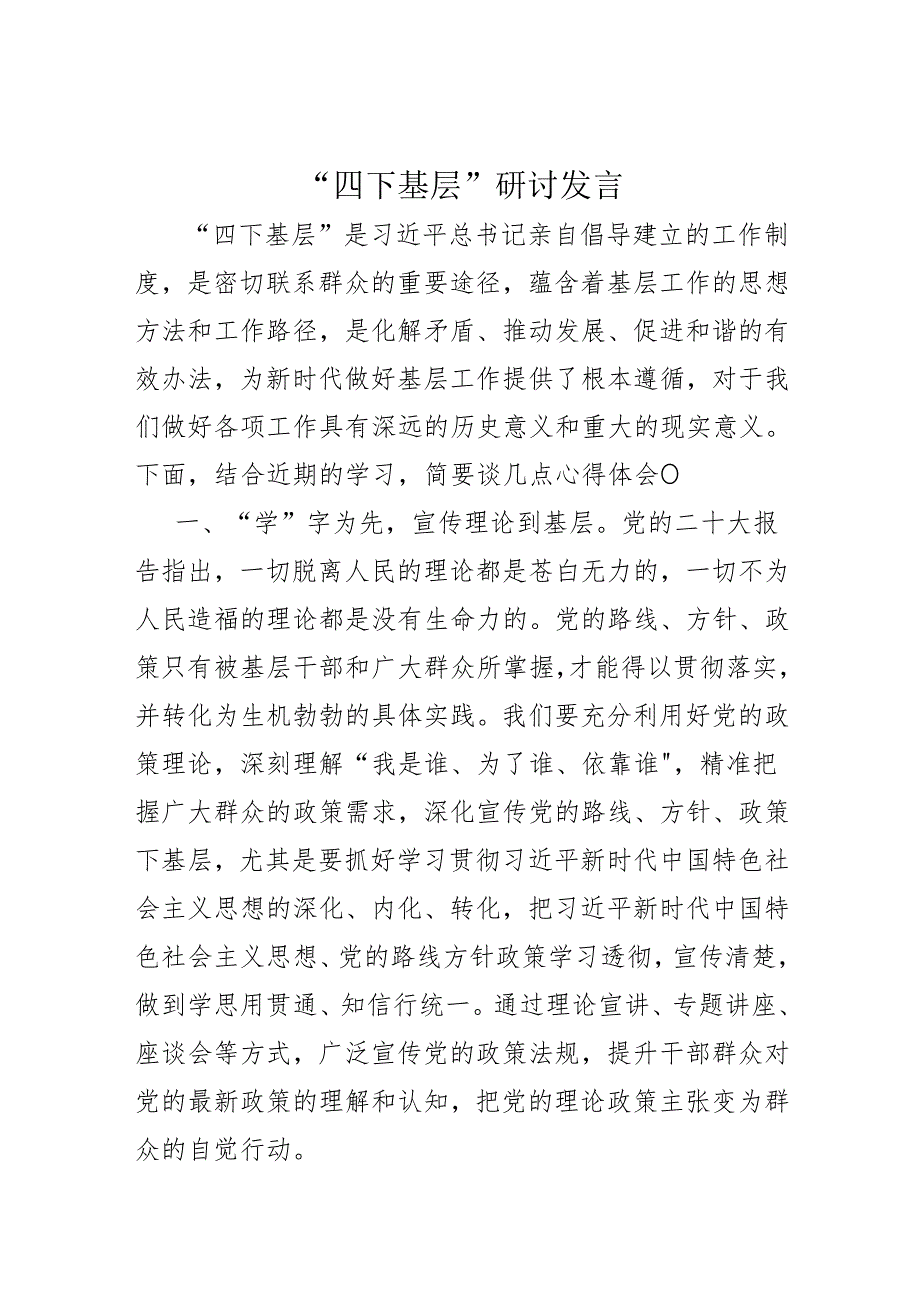 “四下基层”研讨发言
“四下基层”是习近平总书记亲自倡导建立的工作制
度，是密切联系群众的重要途径，蕴含着基层工作的思想
方法和工作路径，是化解矛盾、推动发展、促进和谐的有
效办法，为新时代做好基层工作提供了根本遵循，对于我
们做好各项工作具有深远的历史意义和重大的现实意义。
下面，结合近期的学习，简要谈几点心得体会O
一、“学”字为先，宣传理论到基层。党的二十大报
告指出，一切脱离人民的理论都是苍白无力的，一切不为
人民造福的理论都是没有生命力的。党的路线、方针、政
策只有被基层干部和广大群众所掌握，才能得以贯彻落实，
并转化为生机勃勃的具体实践。我们要充分利用好党的政
策理论，深刻理解“我是谁、为了谁、依靠谁"，精准把
握广大群众的政策需求，深化宣传党的路线、方针、政策
下基层，尤其是要抓好学习贯彻习近平新时代中国特色社
会主义思想的深化、内化、转化，把习近平新时代中国特
色社会主义思想、党的路线方针政策学习透彻，宣传清楚，
做到学思用贯通、知信行统一。通过理论宣讲、专题讲座、
座谈会等方式，广泛宣传党的政策法规，提升干部群众对
党的最新政策的理解和认知，把党的理论政策主张变为群
众的自觉行动。